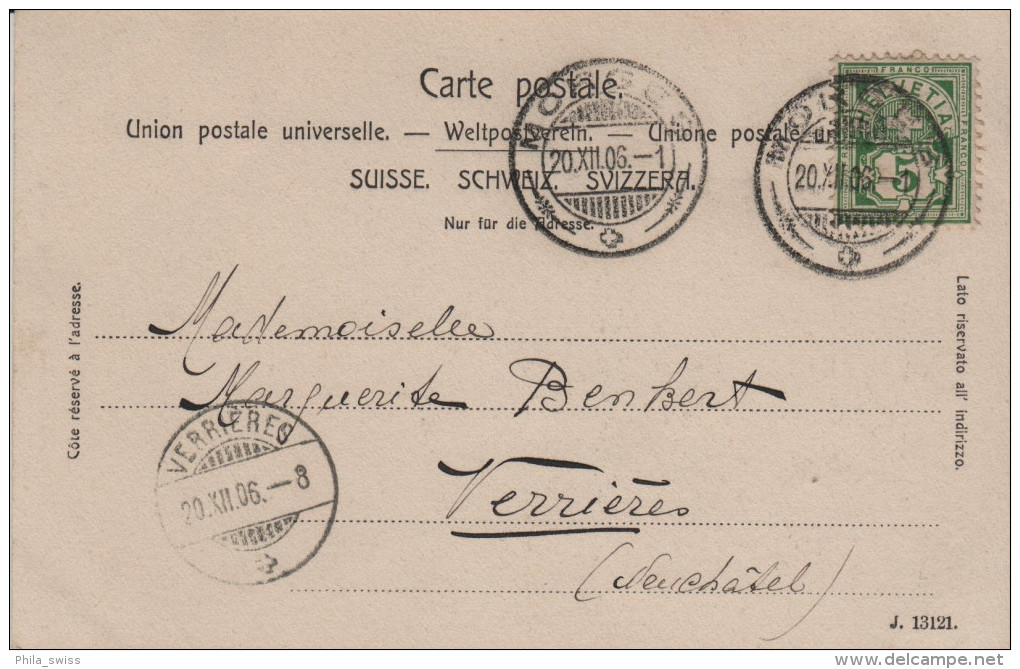 Carte postale.
Union postale universelle. — Weltpostverein. — Unione postale universale
SUISSE. SCHWEIZ. SVIZZERA.
Nur für die Adresse.
MORGES
20.XII.06.—1
MORGES
20.XII.06.—1
FRANCO
HELVETIA
FRANCO
5
Côté réservé à l'adresse.
Lato riservato all' indirizzo.
Mademoiselle
Marguerite Benkert
Verrières
(Neuchâtel)
VERRIÈRES
20.XII.06.—8
J. 13121.
Phila_swiss
delcampe.net